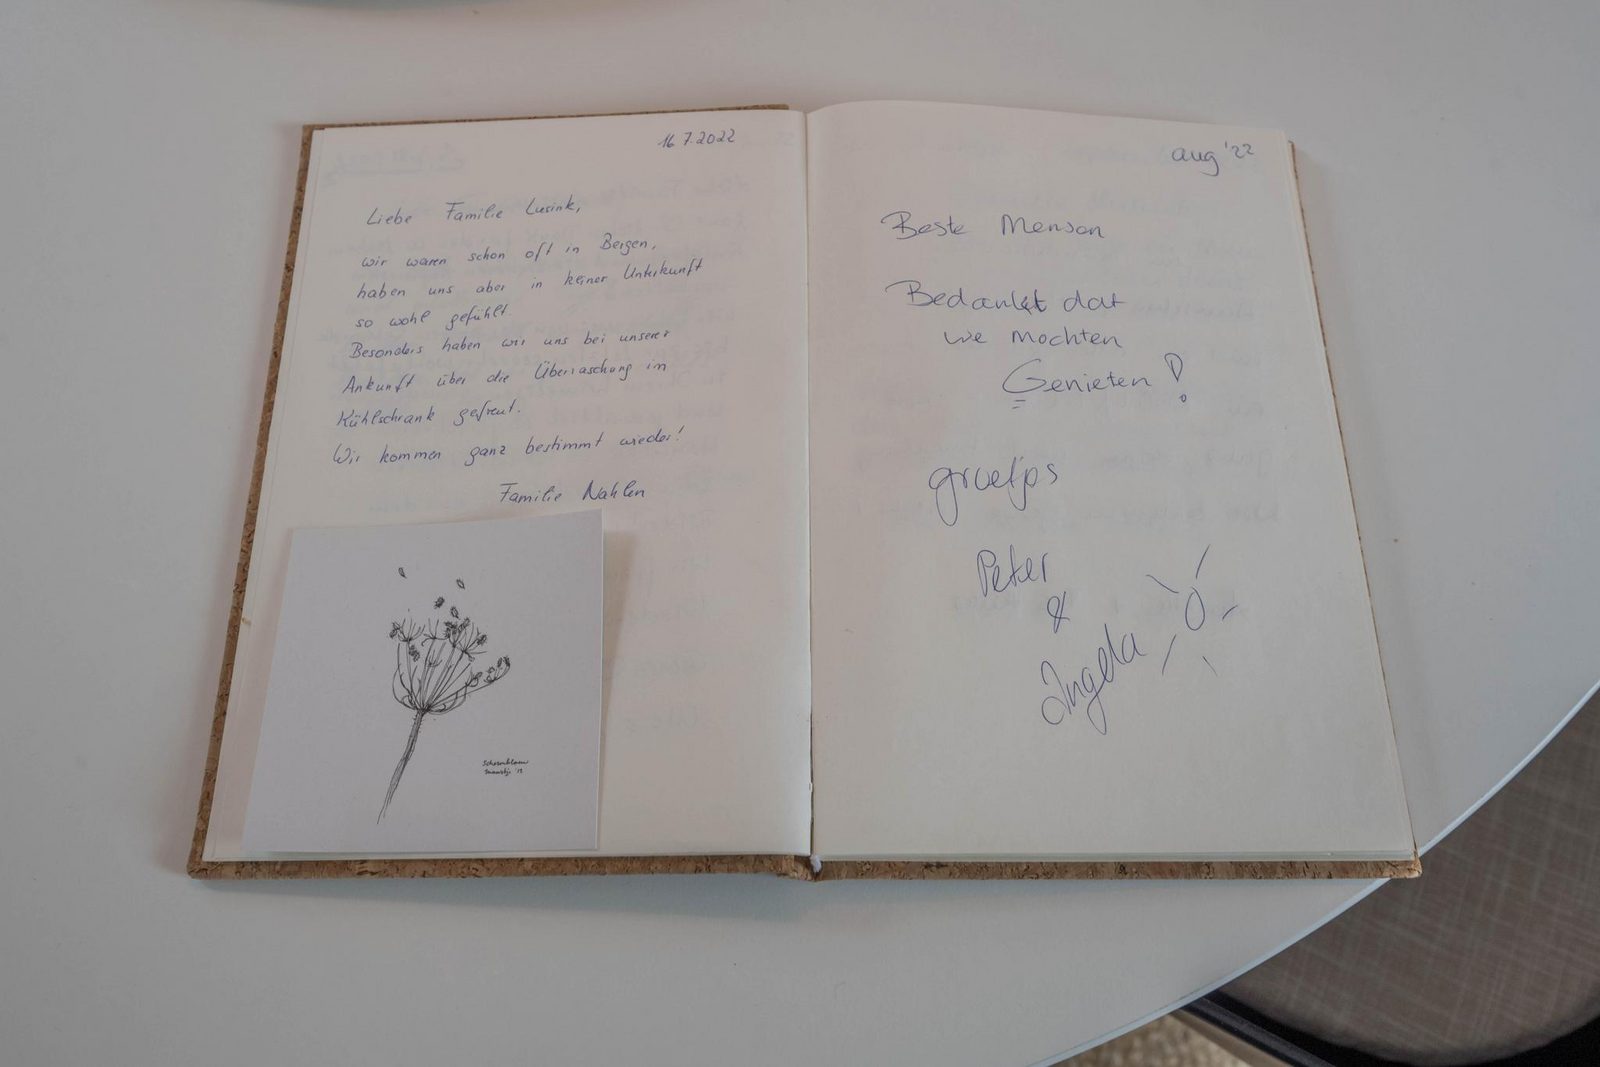 16.7.2022
Liebe Familie Lusink,
wir waren schon oft in Bergen,
haben uns aber in keiner Unterkunft
so wohl gefühlt
Besonders haben wir uns bei unserer
Ankunft über die Überraschung im
Kühlschrank gefreut.
Wir kommen ganz bestimmt wieder!
Familie Nahlen
aug '22
Beste Mensen
Bedankt dat
we mochten
Genieten!
groetjes
Peter
&
Ingela